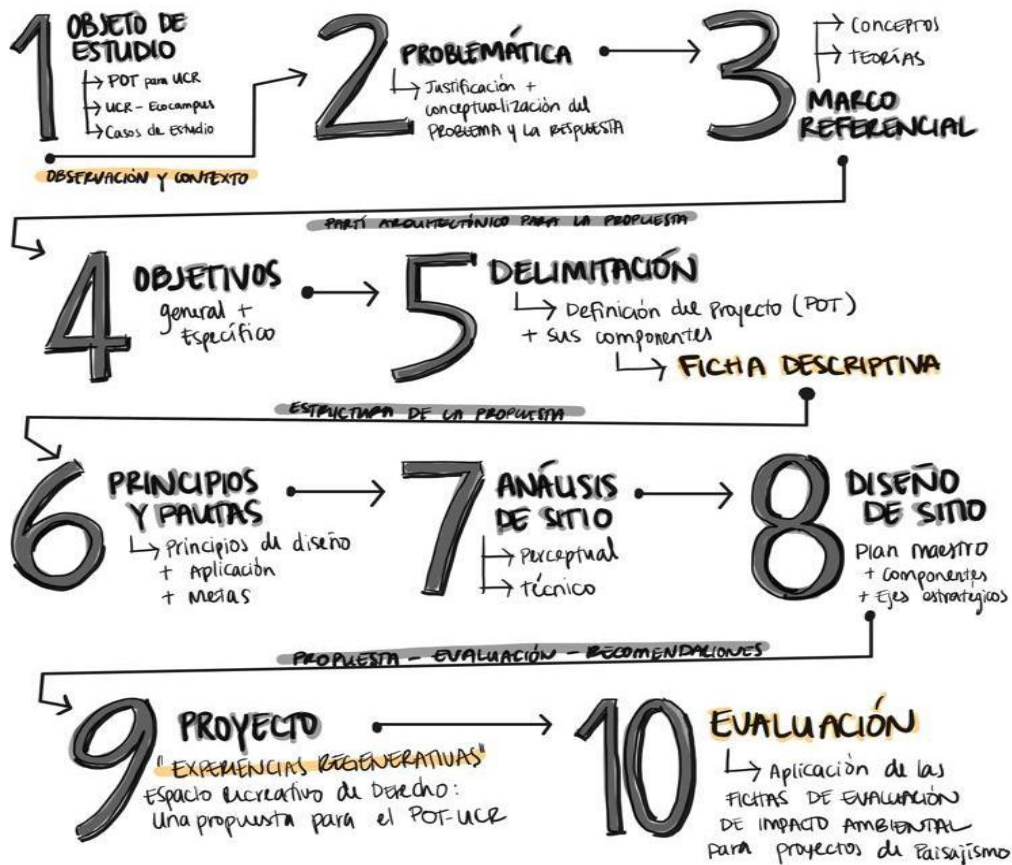 1
OBJETO DE
ESTUDIO
POT para UCR
UCR - Ecocampus
Casos de Estudio
OBSERVACIÓN Y CONTEXTO
2
PROBLEMÁTICA
Justificación +
conceptualización del
PROBLEMA Y LA RESPUESTA
3
CONCEPTOS
TEORÍAS
MARCO
REFERENCIAL
PARTÍ ARQUITECTÓNICO PARA LA PROPUESTA
4
OBJETIVOS
general +
Específico
5
DELIMITACIÓN
Definición del Proyecto (POT)
+ sus componentes
FICHA DESCRIPTIVA
ESTRUCTURA DE LA PROPUESTA
6
PRINCIPIOS
Y PAUTAS
Principios de diseño
+ Aplicación
+ Metas
7
ANÁLISIS
DE SITIO
Perceptual
Técnico
8
DISEÑO
DE SITIO
Plan maestro
+ Componentes
+ Ejes estratégicos
PROPUESTA - EVALUACIÓN - RECOMENDACIONES
9
PROYECTO
"EXPERIENCIAS REGENERATIVAS"
Espacio Recreativo de Derecho:
Una propuesta para el POT-UCR
10
EVALUACIÓN
Aplicación de las
FICHAS DE EVALUACIÓN
DE IMPACTO AMBIENTAL
para proyectos de Paisajismo